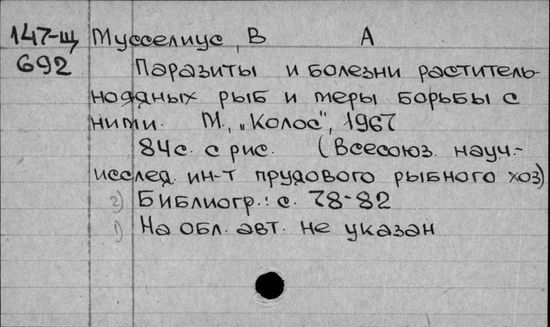 147-щ Мусселиус, В А
692 Паразиты и болезни раститель-
ноядных рыб и меры борьбы с
ними. М., „Колос", 1967
84 с. с рис. (Всесоюз. науч.-
исслед. ин-т прудового рыбного хоз)
2) Библиогр.: с. 78-82
1) На обл. авт. не указан